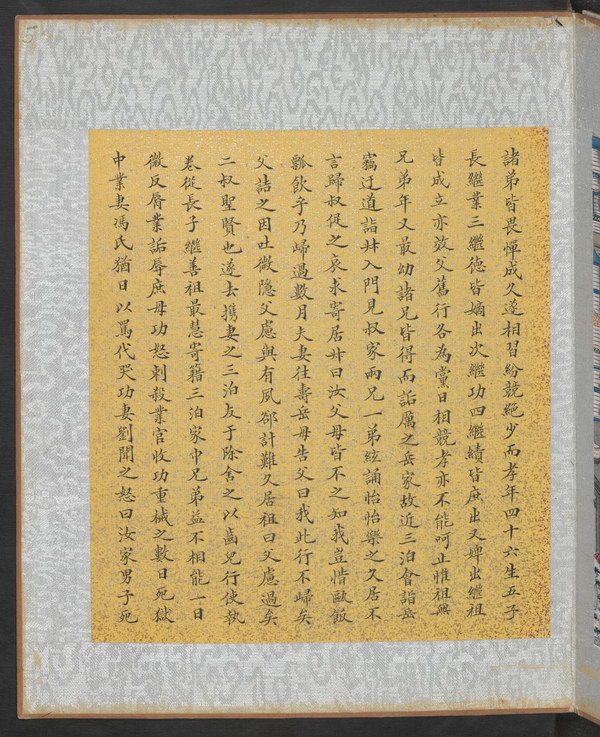 5
諸弟皆畏憚成久遂相習紛競絕少而孝年四十六生五子
長繼業三繼德皆嫡出次繼功四繼績皆庶出又婢出繼祖
皆成立亦效父舊行各為黨日相競孝亦不能呵止惟祖無
兄弟年又最幼諸兄皆得而詬厲之岳家故近三泊會詣岳
竊迂道詣叔入門見叔家兩兄一弟絃誦怡怡樂之久居不
言歸叔促之哀求寄居叔曰汝父母皆不之知我豈惜甌飯
瓢飲乎乃歸過數月夫妻往壽岳母告父曰我此行不歸矣
父詰之因吐微隱父慮與有夙郤計難久居祖曰父慮過矣
二叔聖賢也遂去携妻之三泊友于除舍之以齒兒行使執
卷從長子繼善祖最慧寄籍三泊家中兄弟益不相能一日
微反脣業詬辱庶母功怒刺殺業官收功重械之數日死獄
中業妻馮氏猶日以罵代哭功妻劉聞之怒曰汝家男子死